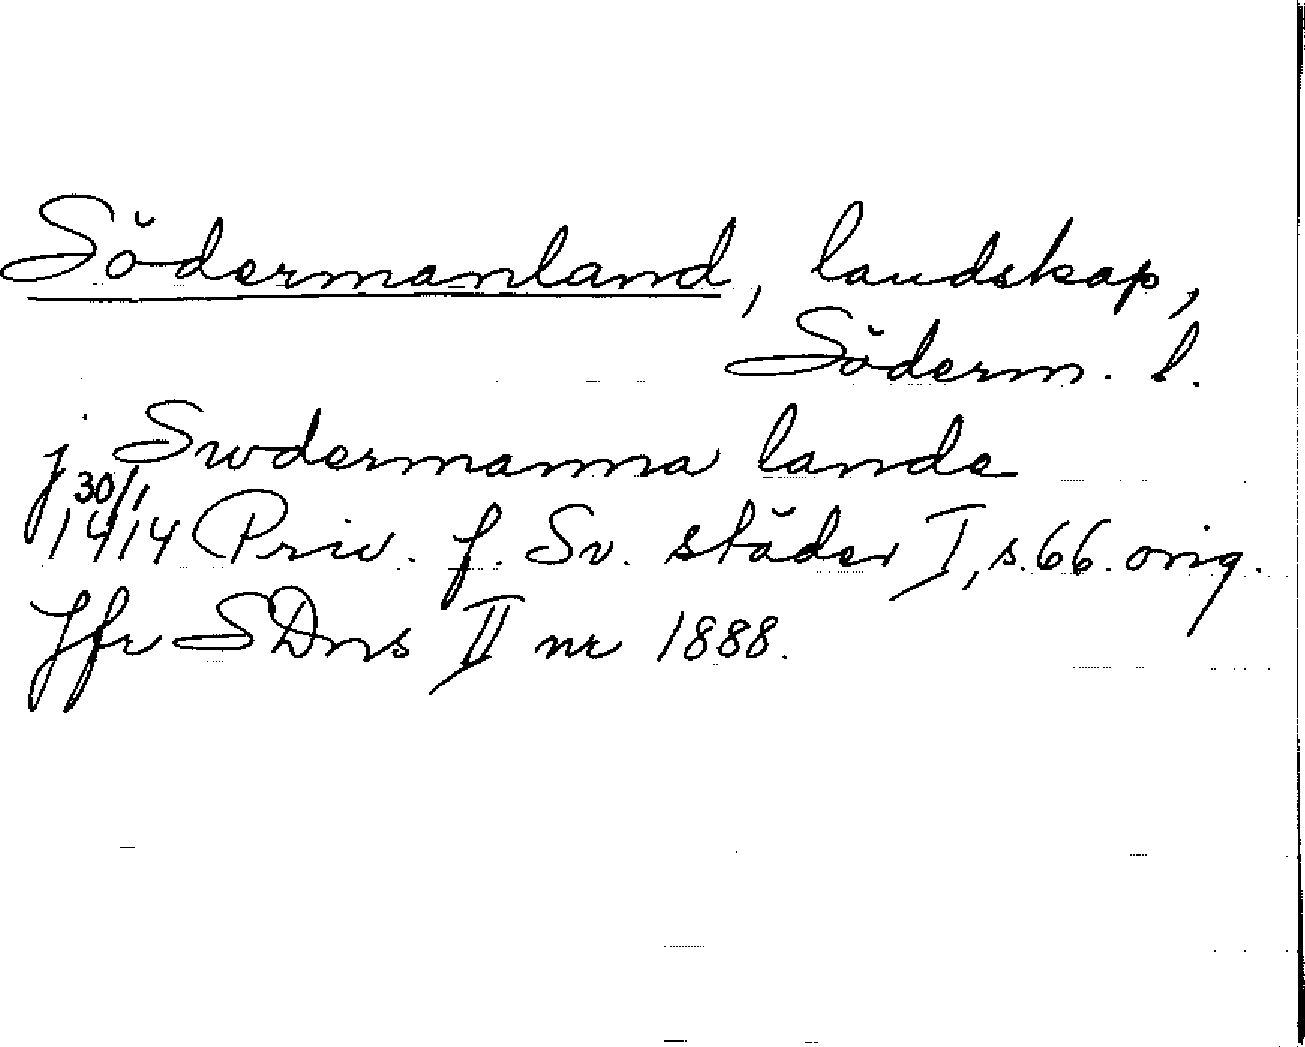 Södermanland, landskap,
Söderm. l.
j Swdermanna lande
30/1
1414 Priv. f. Sv. städer I, s. 66. orig.
Jfr SDns II nr 1888.